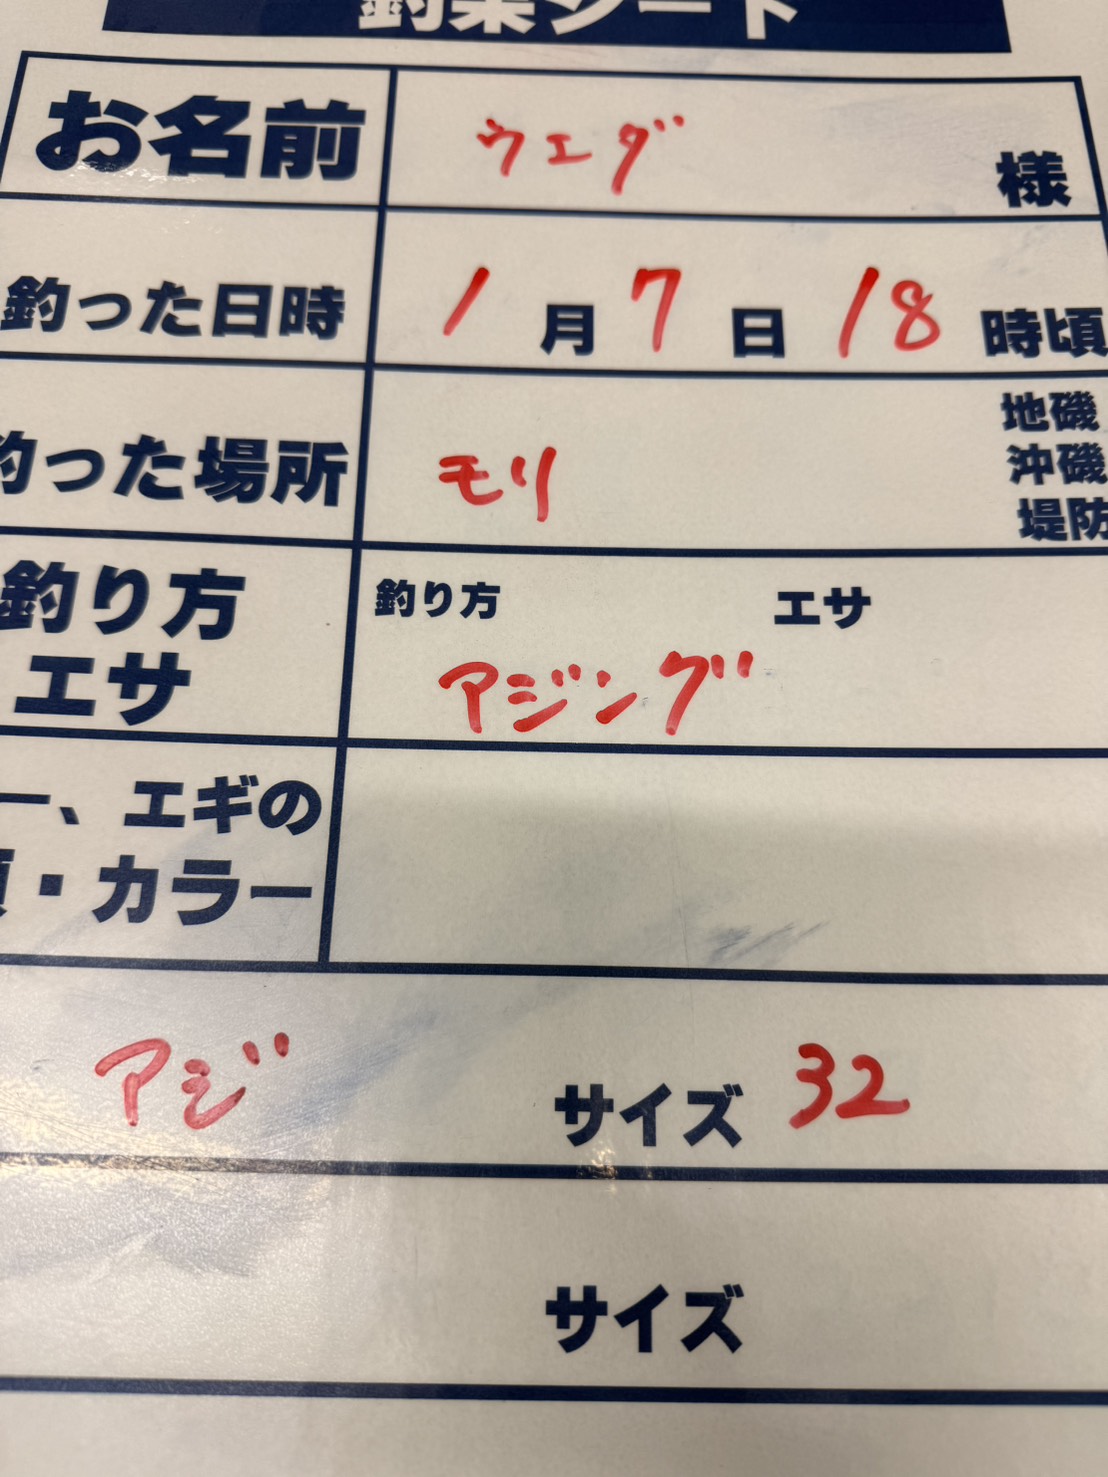 釣果シート
お名前 ウエダ 様
釣った日時 1月7日18時頃
釣った場所 モリ
地磯
沖磯
堤防
釣り方
エサ
釣り方 エサ
アジング
ー、エギの
類・カラー
アジ サイズ 32
サイズ